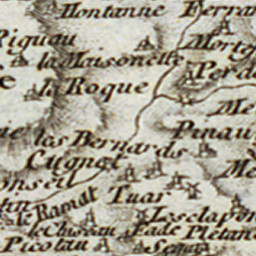 Montanne Ferran
Riguau
Mortg
la Maisonette
Perd
la Roque
Me
Pinau
les Bernards
Cugnet
Mè
onseil
le Ramat Tuar
Lesclapon
le Clusau Fade Pletan
Picotau Segui